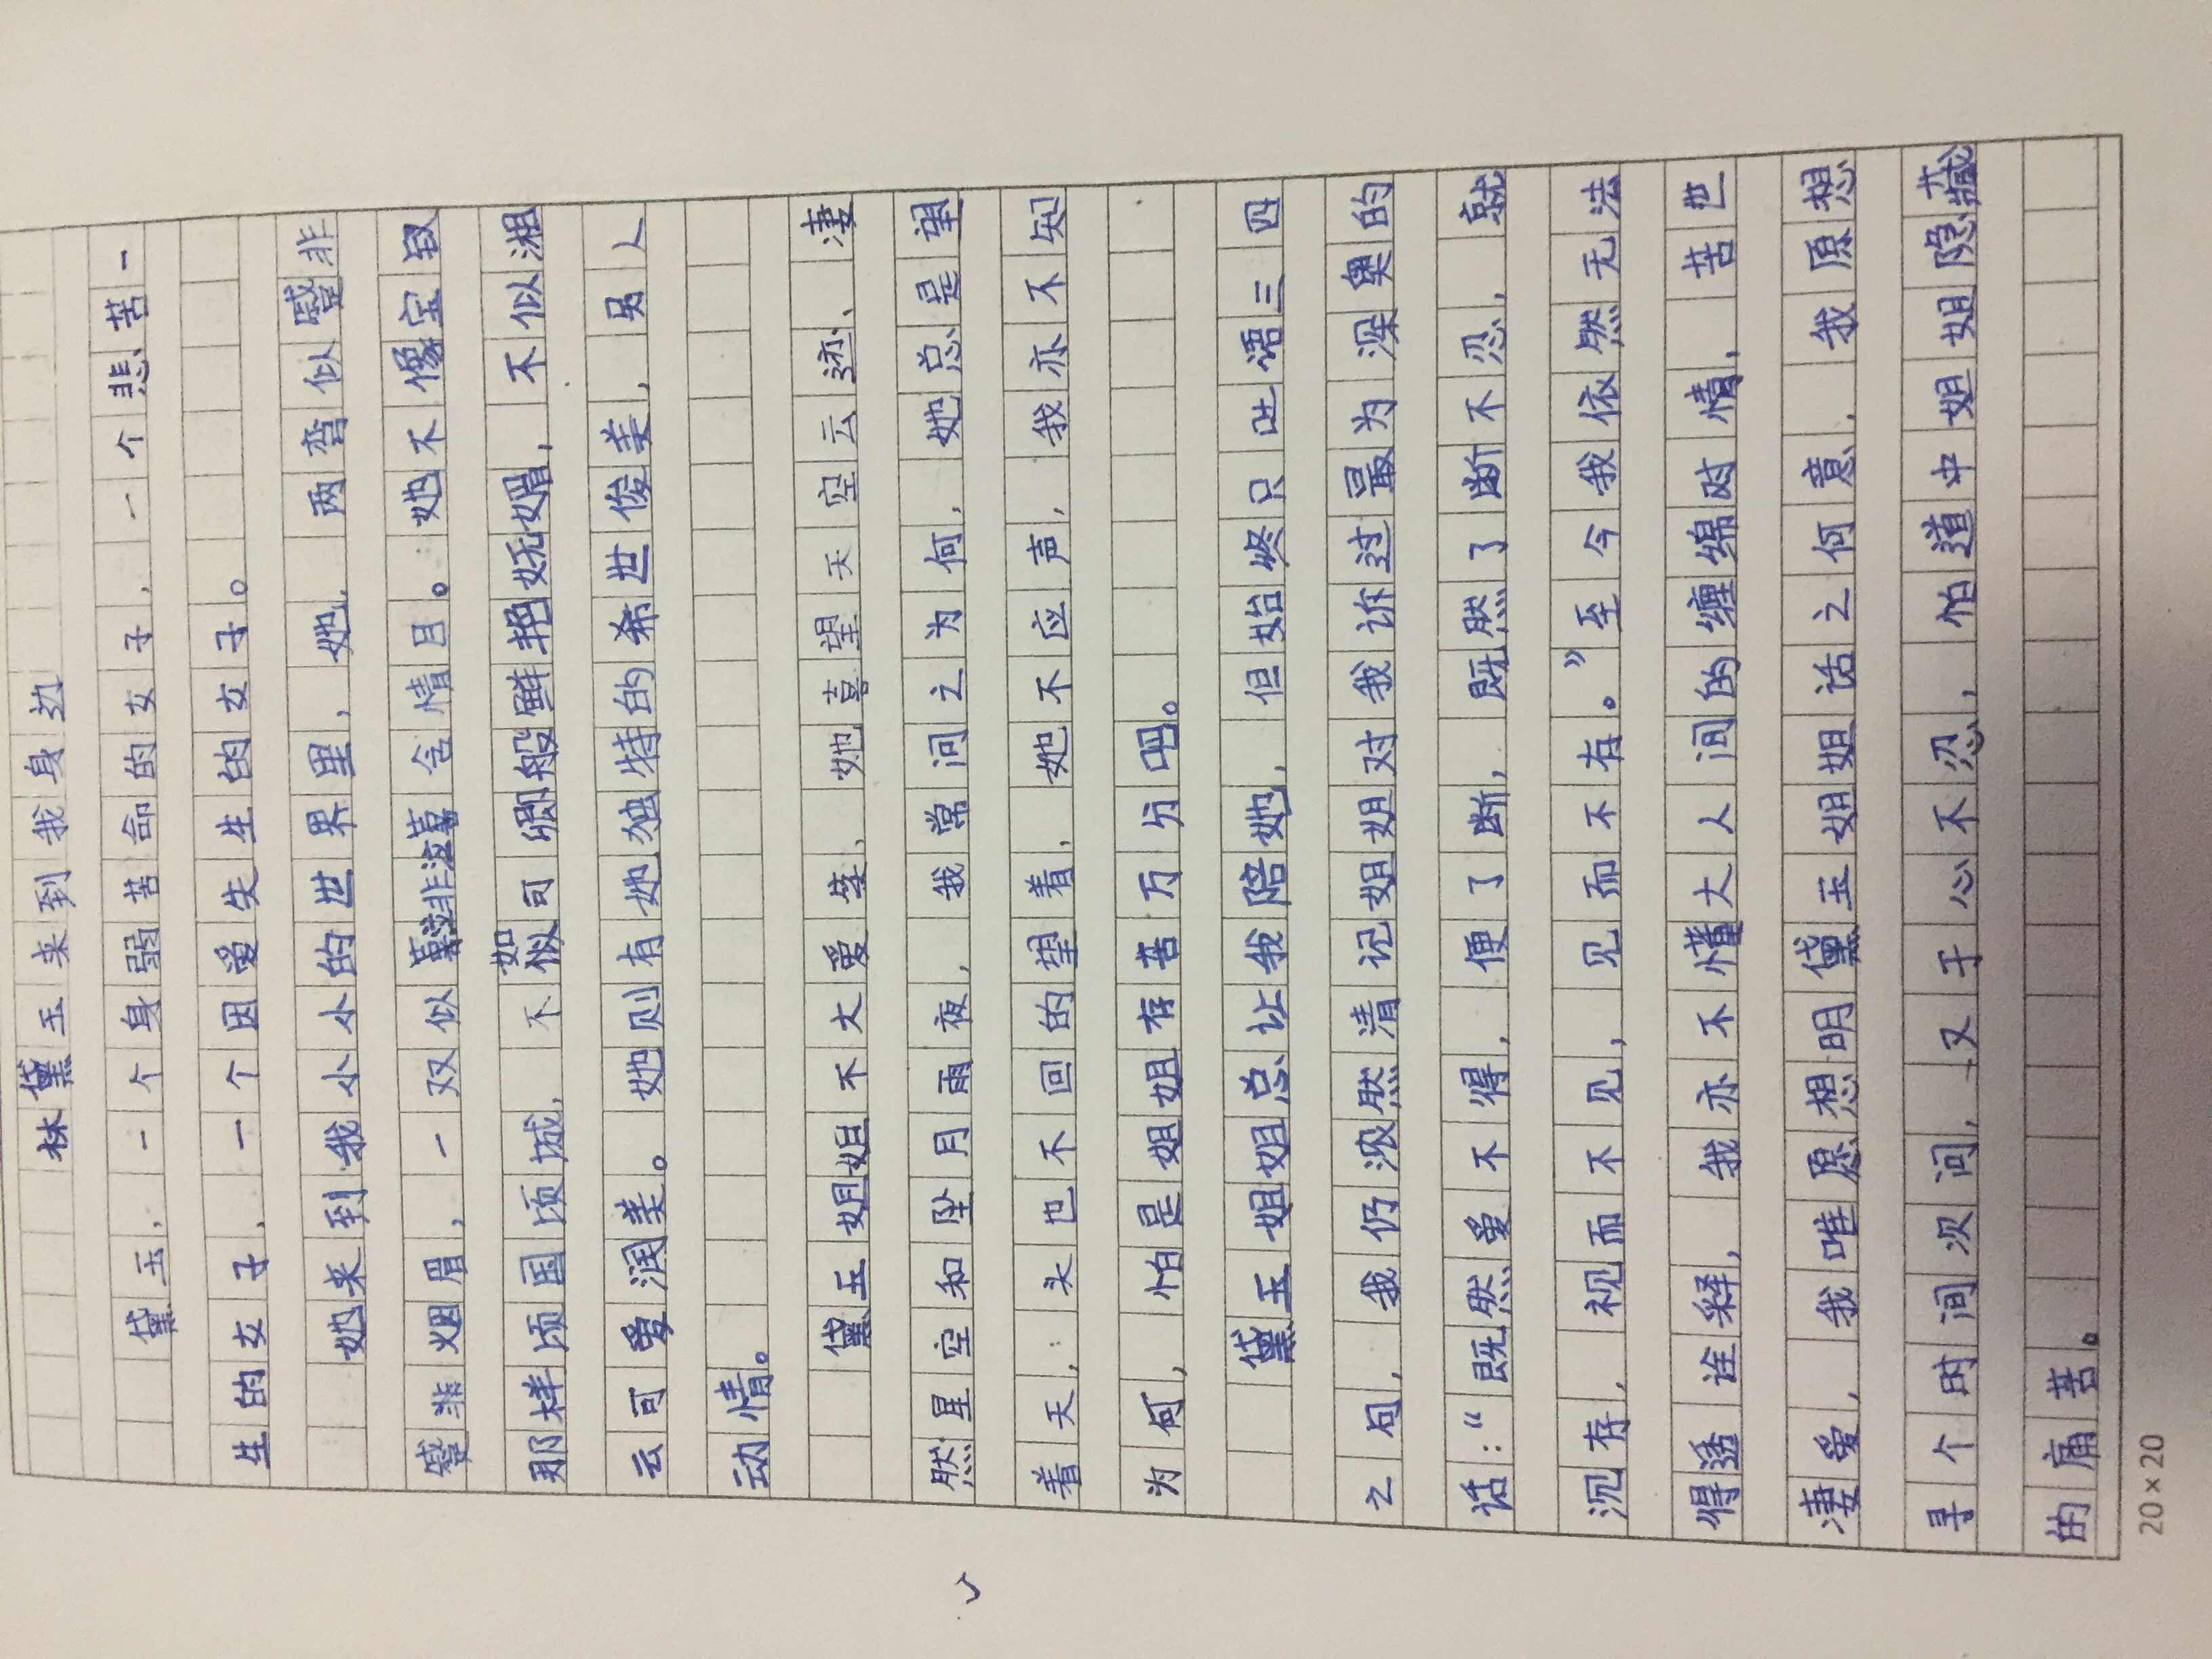 林黛玉来到我身边
黛玉，一个身弱苦命的女子，一个悲苦一
生的女子，一个因爱失生的女子。
她来到我小小的世界里，她，两弯似蹙非
蹙非烟眉，一双似喜非喜含情目。她不像宝钗
那样顷国顷城，不如司卿般鲜艳妩媚，不似湘
云可爱润美。她则有她独特的希世俊美，另人
动情。
黛玉姐姐不大爱笑，她喜望天空云迹、凄
然星空和坠月雨夜，我常问之为何，她总是望
着天，头也不回的望着，她不应声，我亦不知
为何，怕是姐姐存苦万分吧。
黛玉姐姐总让我陪她，但始终只吐语三四
之句，我仍浓然清记姐姐对我诉过最为深奥的
话：“既然爱不得，便了断，既然了断不忍，就
沉存，视而不见，见而不有。”至今我依然无法
得透诠释，我亦不懂大人间的缠绵对情，苦世
凄爱，我唯愿想明黛玉姐姐话之何意，我原想
寻个时间次问，又于心不忍，怕道中姐姐隐藏
的痛苦。
20×20